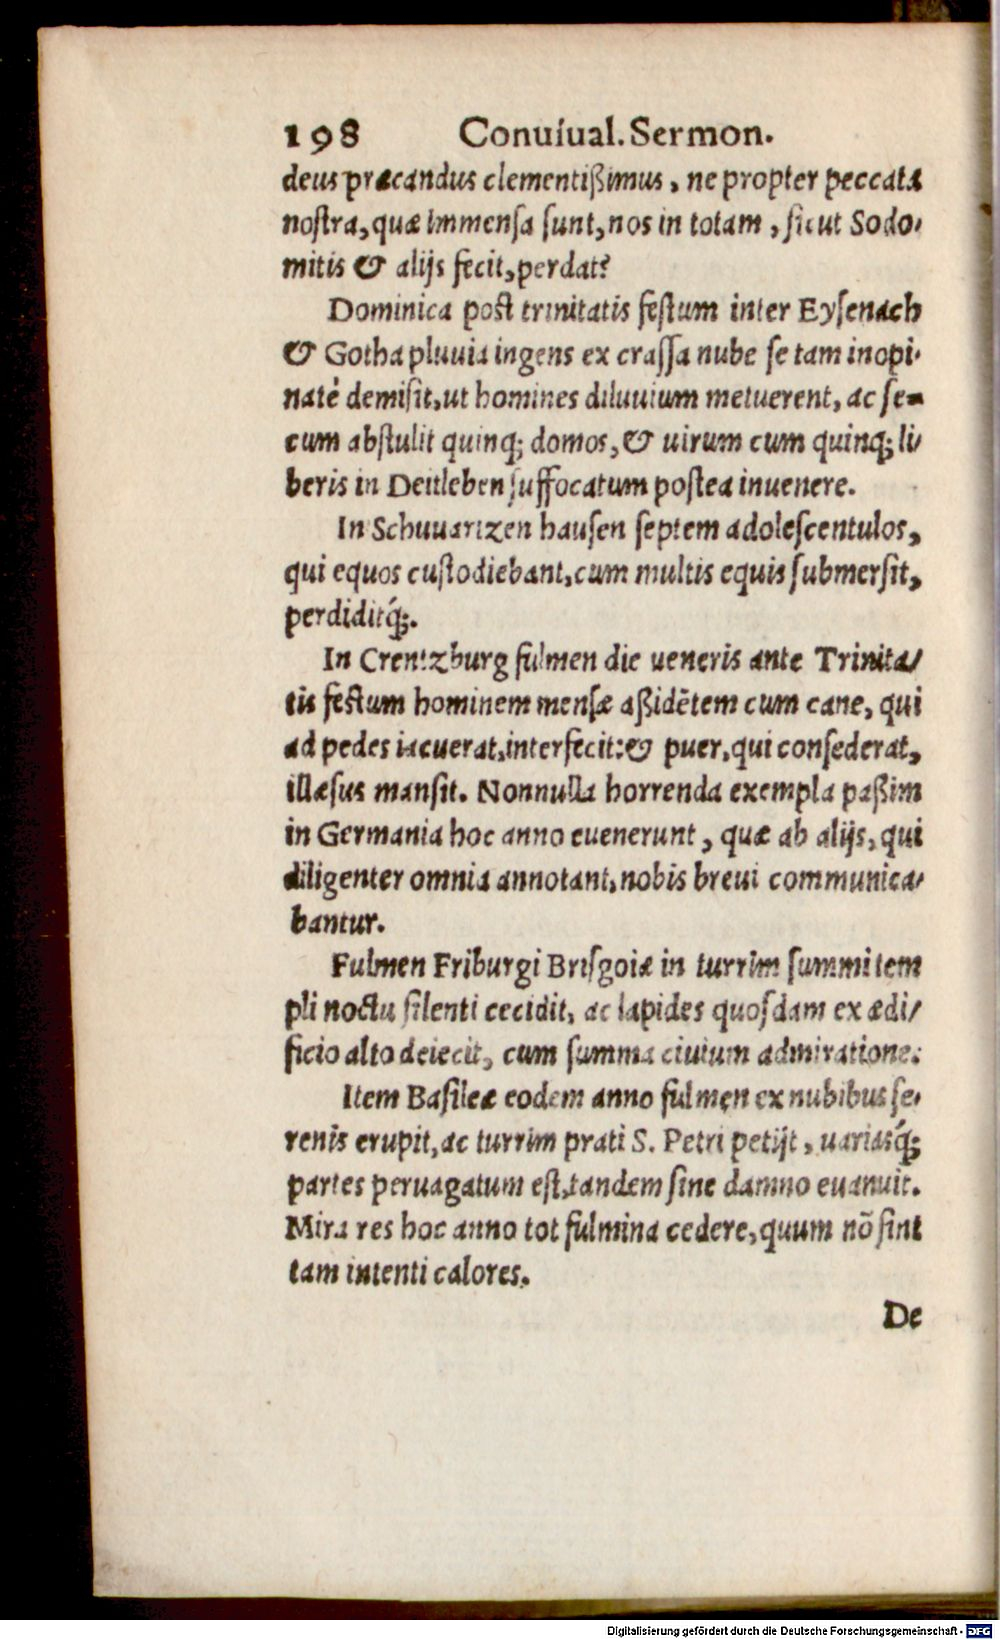 198 Conuiual. Sermon.
deus præcandus clementißimus, ne propter peccata
nostra, quæ immensa sunt, nos in totam, sicut Sodo-
mitis & alijs fecit, perdat?
Dominica post trinitatis festum inter Eysenach
& Gotha pluuia ingens ex crassa nube se tam inopi-
natè demisit, ut homines diluuium metuerent, ac se-
cum abstulit quinq; domos, & uirum cum quinq; li-
beris in Deitleben suffocatum postea inuenere.
In Schuuartzen hausen septem adolescentulos,
qui equos custodiebant, cum multis equis submersit,
perdiditq́;.
In Crentzburg fulmen die ueneris ante Trinita-
tis festum hominem mensæ aßidētem cum cane, qui
ad pedes iacuerat, interfecit: & puer, qui consederat,
illæsus mansit. Nonnulla horrenda exempla paßim
in Germania hoc anno euenerunt, quæ ab alijs, qui
diligenter omnia annotant, nobis breui communica-
bantur.
Fulmen Friburgi Brisgoiæ in turrim summi tem
pli noctu silenti cecidit, ac lapides quosdam ex ædi-
ficio alto deiecit, cum summa ciuium admiratione.
Item Basileæ eodem anno fulmen ex nubibus se-
renis erupit, ac turrim prati S. Petri petijt, uariasq́;
partes peruagatum est, tandem sine damno euanuit.
Mira res hoc anno tot fulmina cedere, quum nō sint
tam intenti calores.
De
Digitalisierung gefördert durch die Deutsche Forschungsgemeinschaft - DFG